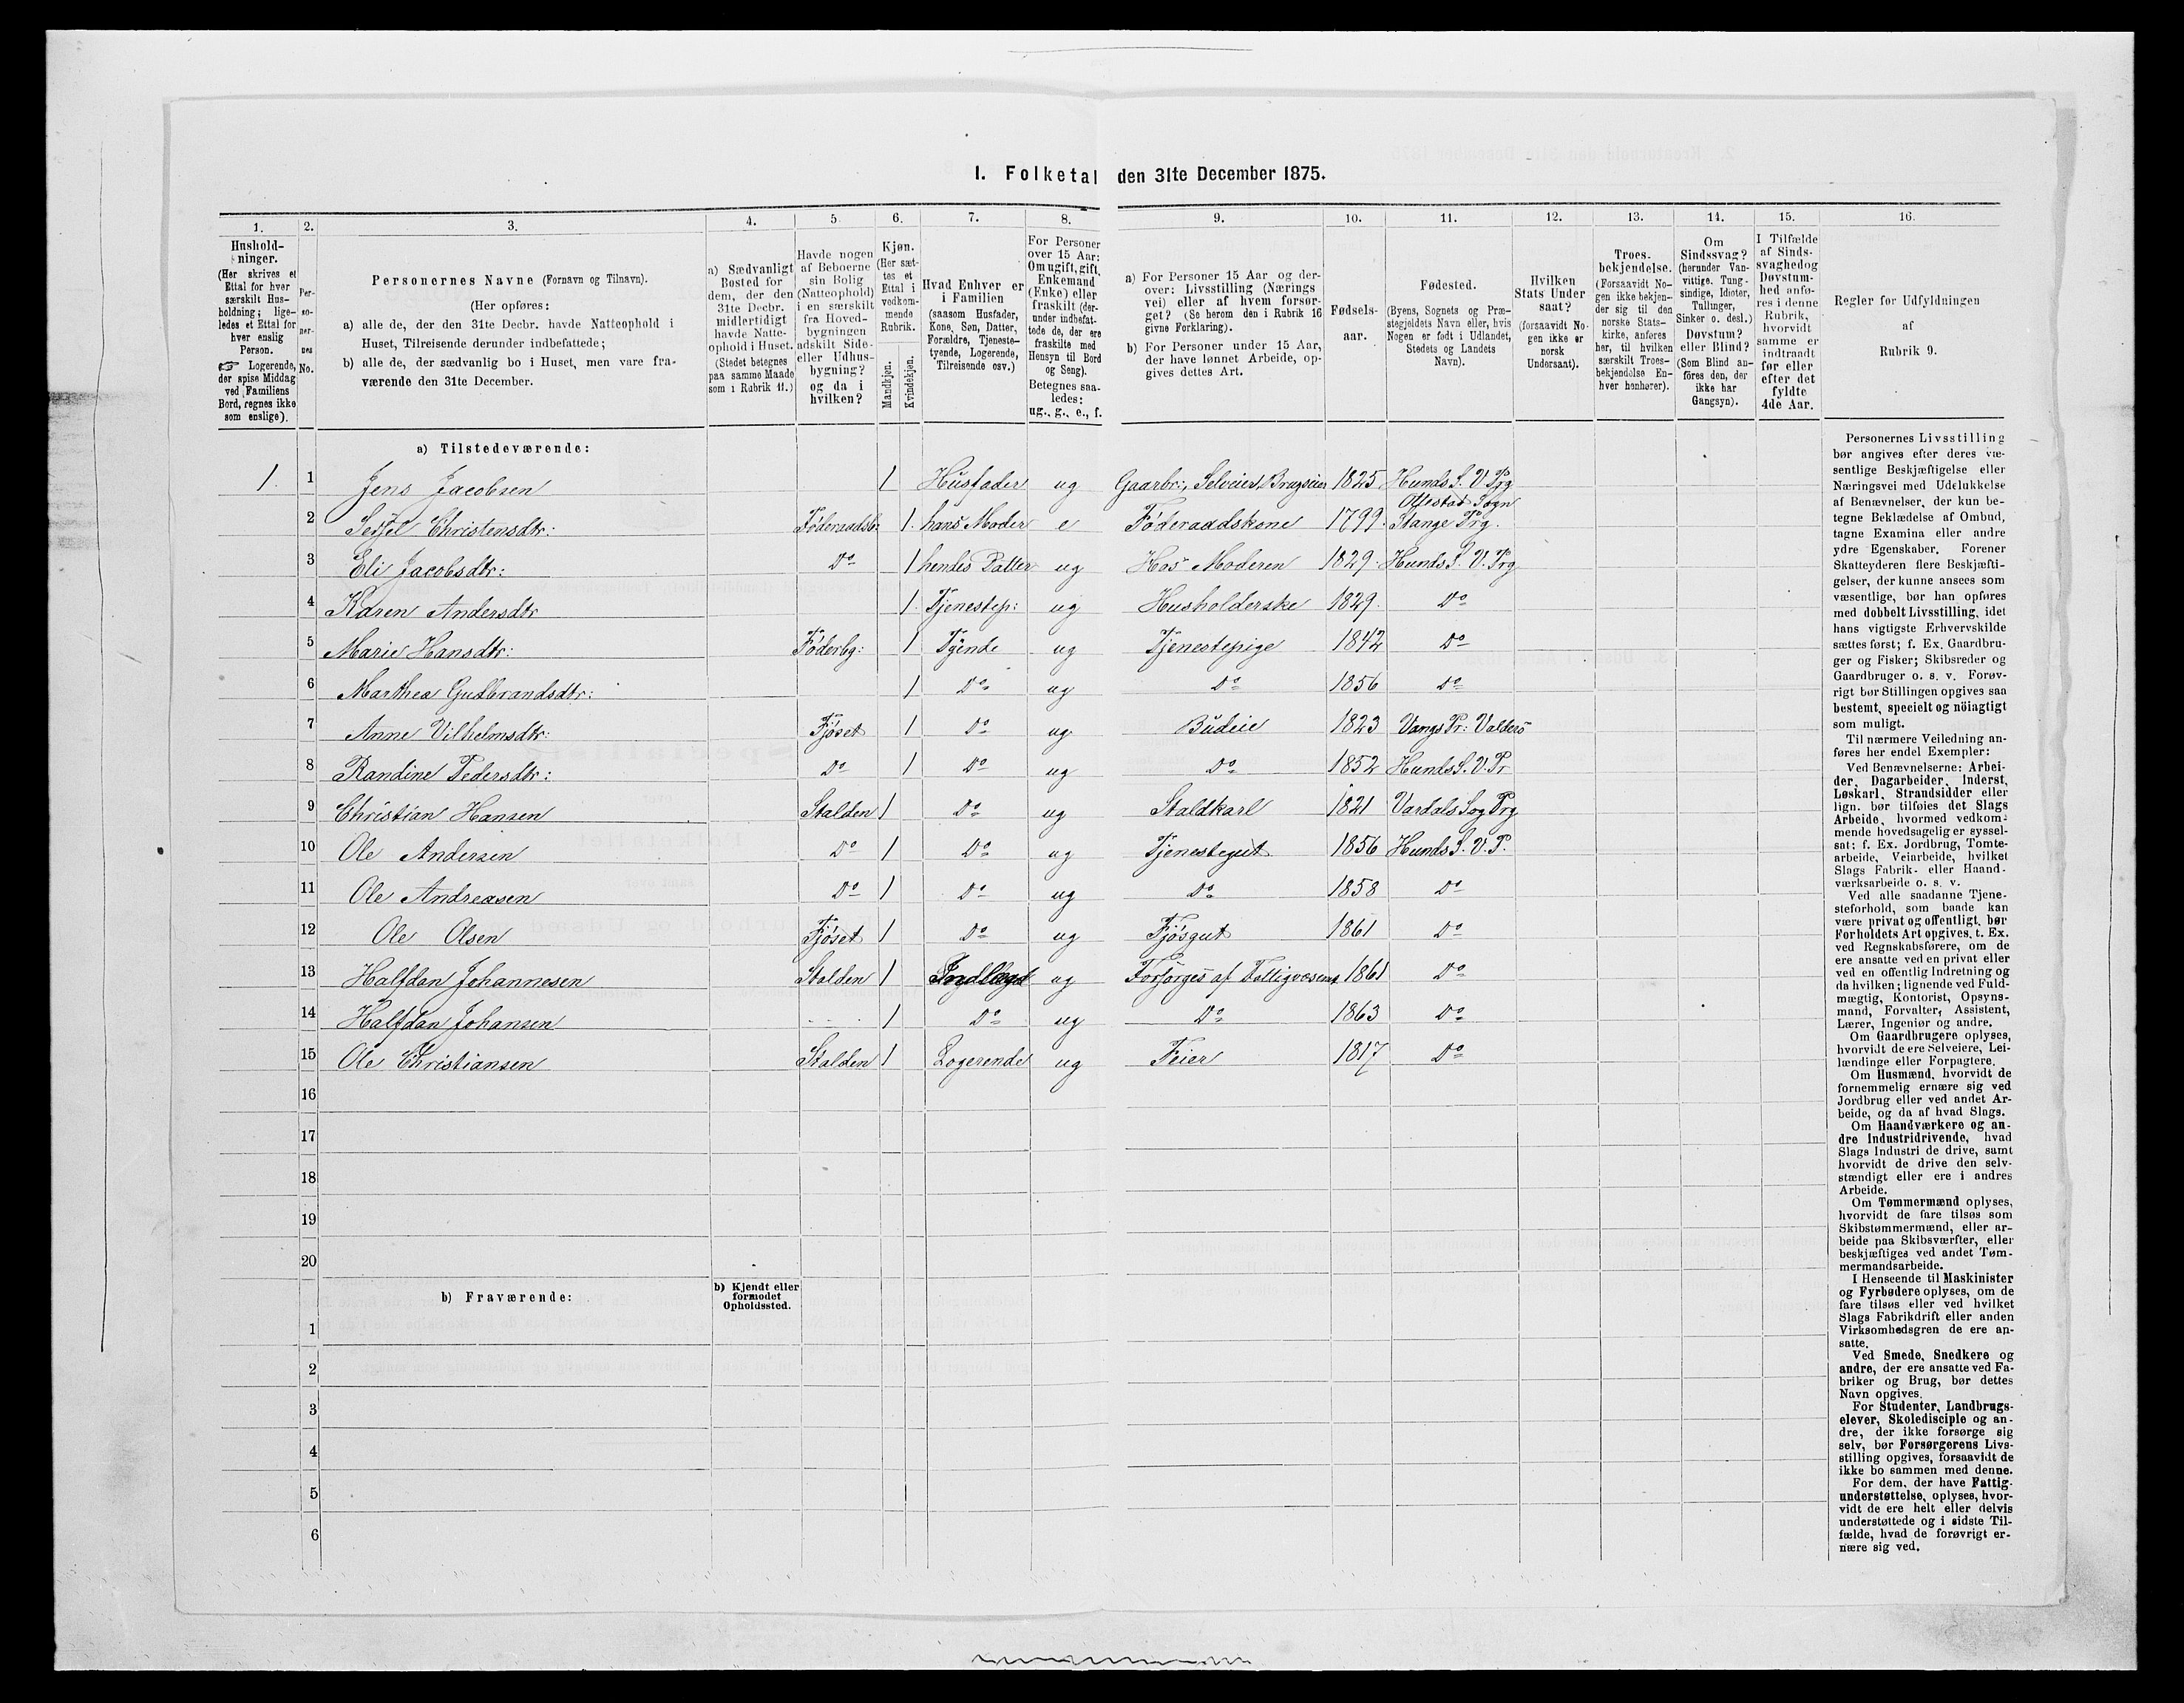 I. Folketal den 31te December 1875.
1. 2. 3. 4. 5. 6. 7. 8. 9. 10. 11. 12. 13. 14. 15. 16.
Hushold-
ninger.
(Her skrives et
Ettal for hver
særskilt Hus-
holdning; lige-
ledes et Ettal for
hver enslig
Person.
☞ Logerende,
der spise Middag
ved Familiens
Bord, regnes ikke
som enslige).
Per-
so-
ner-
nes
No.
Personernes Navne (Fornavn og Tilnavn).
(Her opføres:
a) alle de, der den 31te Decbr. havde Natteophold i
Huset, Tilreisende derunder indbefattede;
b) alle de, der sædvanlig bo i Huset, men vare fra-
værende den 31te December.
a) Sædvanligt
Bosted for
dem, der den
31te Decbr.
midlertidigt
havde Natte-
ophold i Huset.
(Stedet betegnes
paa samme Maade
som i Rubrik 11.)
Havde nogen
af Beboerne
sin Bolig
(Natteophold)
i en særskilt
fra Hoved-
bygningen
adskilt Side-
eller Udhus-
bygning?
og da i
hvilken?
Kjøn.
(Her sæt-
tes et
Ettal i
vedkom-
mende
Rubrik.
Mandkjøn.
Kvindekjøn.
Hvad Enhver er
i Familien
(saasom Husfader,
Kone, Søn, Datter,
Forældre, Tjeneste-
tyende, Logerende,
Tilreisende osv.)
For Personer
over 15 Aar:
Om ugift, gift,
Enkemand
(Enke) eller
fraskilt (der-
under indbefat-
tede de, der ere
fraskilte med
Hensyn til Bord
og Seng).
Betegnes saa-
ledes:
ug., g., e., f.
a) For Personer 15 Aar og der-
over: Livsstilling (Nærings
vei) eller af hvem forsør-
get? (Se herom den i Rubrik 16
givne Forklaring).
b) For Personer under 15 Aar,
der have lønnet Arbeide, op-
gives dettes Art.
Fødsels-
aar.
Fødested.
(Byens, Sognets og Præ-
stegjeldets Navn eller, hvis
Nogen er født i Udlandet,
Stedets og Landets
Navn).
Hvilken
Stats Under
saat?
(forsaavidt No-
gen ikke er
norsk
Undersaat).
Troes-
bekjendelse.
(Forsaavidt No-
gen ikke bekjen-
der sig til den
norske Stats-
kirke, anføres
her, til hvilken
særskilt Troes-
bekjendelse En-
hver henhører).
Om
Sindssvag?
(herunder Van-
vittige, Tung-
sindige, Idioter,
Tullinger,
Sinker o. desl.)
Døvstum?
eller Blind?
(Som Blind an-
föres den, der
ikke har
Gangsyn).
I Tilfælde
af Sinds-
svaghed og
Døvstum-
hed anfø-
res i denne
Rubrik,
hvorvidt
samme er
indtraadt
før eller
efter det
fyldte
4de Aar.
Regler for Udfyldningen
af
Rubrik 9.
a) Tilstedeværende:
1. 1 Jens Jacobsen 1 Husfader ug Gaarbr:, Selveier, Brugseier 1825 Hunds S. V. Prg
2 Seffel Christensdtr: Føderaadsb: 1. hans Moder e Föderaadskone 1799. Ottestad Sogn
Stange Prg.
3 Eli Jacobsdtr: Do 1 hendes Datter ug Hos Moderen 1829. Hunds S. V. Prg
4 Karen Andersdtr 1. Tjenestep: ug Husholderske 1829. Do
5 Marie Hansdtr: Föderbg: 1 Tyende ug Tjenestepige 1842 Do
6 Marthea Gudbrandsdtr: 1 Do ug Do 1856 Do
7 Anne Vilhelmsdtr: Fjöset 1 Do ug Budeie 1823 Vangs Pr: Valders
8 Randine Pedersdtr: Do 1 Do ug Do 1852 Hunds S. V. Pr
9 Christian Hansen Stalden 1 Do ug Staldkarl 1821 Vardals Sog Prg
10 Ole Andersen Do 1 Do ug Tjenestegut 1856 Hunds S. V. P.
11 Ole Andreasen Do 1 Do ug Do 1858 Do
12 Ole Olsen Fjöset 1 Do ug Fjösgut 1861 Do
13 Halfdan Johannesen Stalden 1 Indlægd ug Forsörges af Fattigvæsenet 1861 Do
14 Halfdan Johansen 1 Do ug Do 1863 Do
15 Ole Christiansen Stalden 1 Logerende ug Feier 1817 Do
16
17
18
19
20
b) Fraværende:
b) Kjendt eller
formodet
Opholdssted.
1
2
3
4
5
6
Personernes Livsstilling
bør angives efter deres væ-
sentlige Beskjæftigelse eller
Næringsvei med Udelukkelse
af Benævnelser, der kun be-
tegne Beklædelse af Ombud,
tagne Examina eller andre
ydre Egenskaber. Forener
Skatteyderen flere Beskjæfti-
gelser, der kunne ansees som
væsentlige, bør han opføres
med dobbelt Livsstilling, idet
hans vigtigste Erhvervskilde
sættes først; f. Ex. Gaardbru-
ger og Fisker; Skibsreder og
Gaardbruger o. s. v. Forøv-
rigt bør Stillingen opgives saa
bestemt, specielt og nöiagtigt
som muligt.
Til nærmere Veiledning an-
føres her endel Exempler:
Ved Benævnelserne: Arbei-
der, Dagarbeider, Inderst,
Løskarl, Strandsidder eller
lign. bør tilføies det Slags
Arbeide, hvormed vedkom-
mende hovedsagelig er syssel-
sat; f. Ex. Jordbrug, Tomte-
arbeide, Veiarbeide, hvilket
Slags Fabrik- eller Haand-
værksarbeide o. s. v.
Ved alle saadanne Tjene-
steforhold, som baade kan
være privat og offentligt, bør
Forholdets Art opgives, t. Ex.
ved Regnskabsførere, om de
ere ansatte ved en privat eller
ved en offentlig Indretning og
da hvilken; lignende ved Fuld-
mægtig, Kontorist, Opsyns-
mand, Forvalter, Assistent,
Lærer, Ingeniør og andre.
Om Gaardbrugere oplyses,
hvorvidt de ere Selveiere, Lei-
lændinge eller Forpagtere.
Om Husmænd, hvorvidt de
fornemmelig ernære sig ved
Jordbrug eller ved andet Ar-
beide, og da af hvad Slags.
Om Haandværkere og an-
dre Industridrivende, hvad
Slags Industri de drive, samt
hvorvidt de drive den selv-
stændigt eller ere i andres
Arbeide.
Om Tømmermænd oplyses,
hvorvidt de fare tilsøs som
Skibstømmermænd, eller ar-
beide paa Skibsværfter, eller
beskjæftiges ved andet Tøm-
mermandsarbeide.
I Henseende til Maskinister
og Fyrbødere oplyses, om de
fare tilsøs eller ved hvilket
Slags Fabrikdrift eller anden
Virksomhedsgren de ere an-
satte.
Ved Smede, Snedkere og
andre, der ere ansatte ved Fa-
briker og Brug, bør dettes
Navn opgives.
For Studenter, Landbrugs-
elever, Skoledisciple og an-
dre, der ikke forsørge sig
selv, bør Forsørgerens Livs-
stilling opgives, forsaavidt de
ikke bo sammen med denne.
For dem, der have Fattig-
understøttelse, oplyses, hvor-
vidt de ere helt eller delvis
understøttede og i sidste Til-
fælde, hvad de forøvrigt er-
nære sig ved.